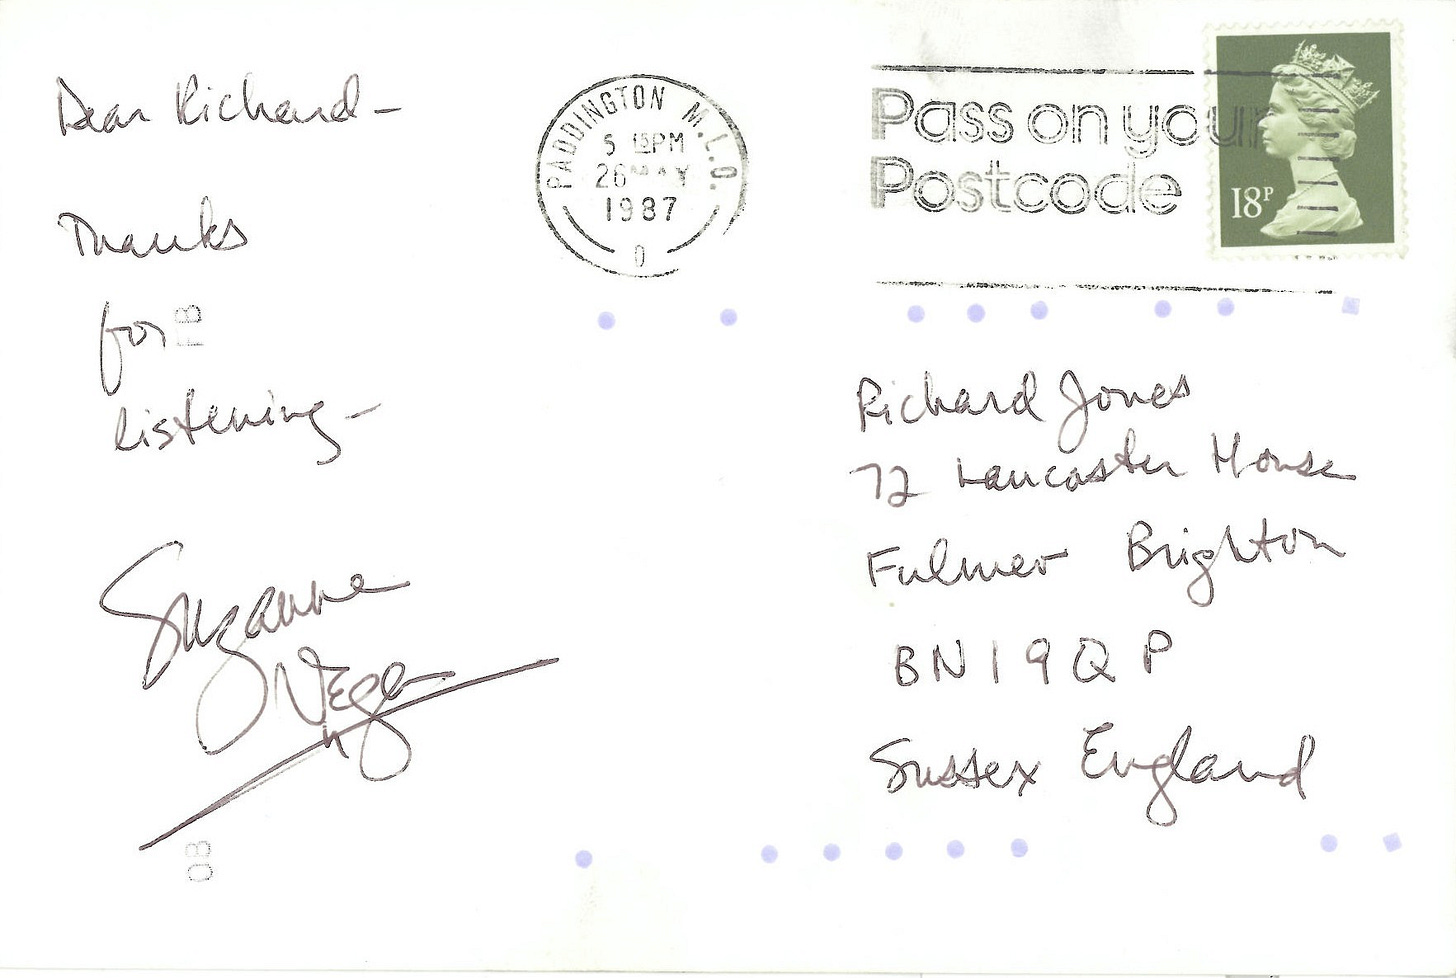 Dear Richard -
Thanks
for
listening -
Suzanne
Vega
PADDINGTON M.L.O.
5 15PM
26 MAY
1987
0
Pass on your
Postcode
18P
Richard Jones
72 Lancaster House
Fulmer Brighton
BN1 9QP
Sussex England
FB
OB